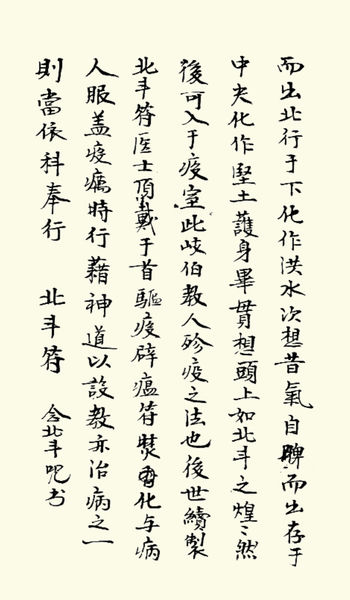 而出北行于下化作洪水次想昔氣自脾而出存于
中央化作堅土護身畢貫想頭上如北斗之煌〻然
後可入于疫室此岐伯教人殄疫之法也後世續製
北斗符医士頂戴于首驅疫辟瘟符焚化与病
人服盖疫癘時行藉神道以設教亦治病之一
則當依科奉行 北斗符 念北斗呪书